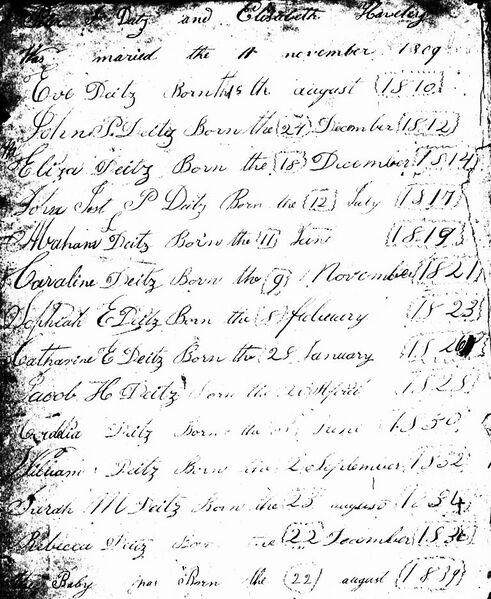 Deitz and Elisabeth
Was maried the 11 november 1809
Eve Deitz Born the 15th august (1810)
John P. Deitz Born the (27) December (1812)
Eliza Deitz Born the (18) December (1814)
John Jost P Deitz Born the (12) July (1817)
Abraham L Deitz Born the (11) June (1819)
Caroline Deitz Born the (9) November (1821)
Sophiah E Deitz Born the (8) febuary (1823)
Catharine E Deitz Born the (28 January (1826)
Jacob H Deitz Born the (1828)
Deitz Born the June (1830)
William Deitz Born the 2 September (1832
Sarah M Deitz Born the 28 august (1834
Rebecca Deitz Born the (22 December (1836)
Baby was Born the (22) august (1839)